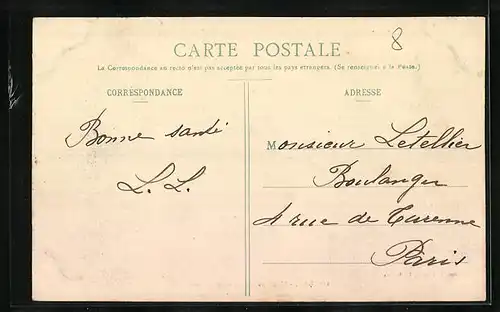 8
CARTE POSTALE
La Correspondance au recto n'est pas acceptée par tous les pays étrangers. (Se renseigner à la Poste.)
CORRESPONDANCE
Bonne santé
L. L.
ADRESSE
Monsieur Letellier
Boulanger
4 rue de Turenne
Paris